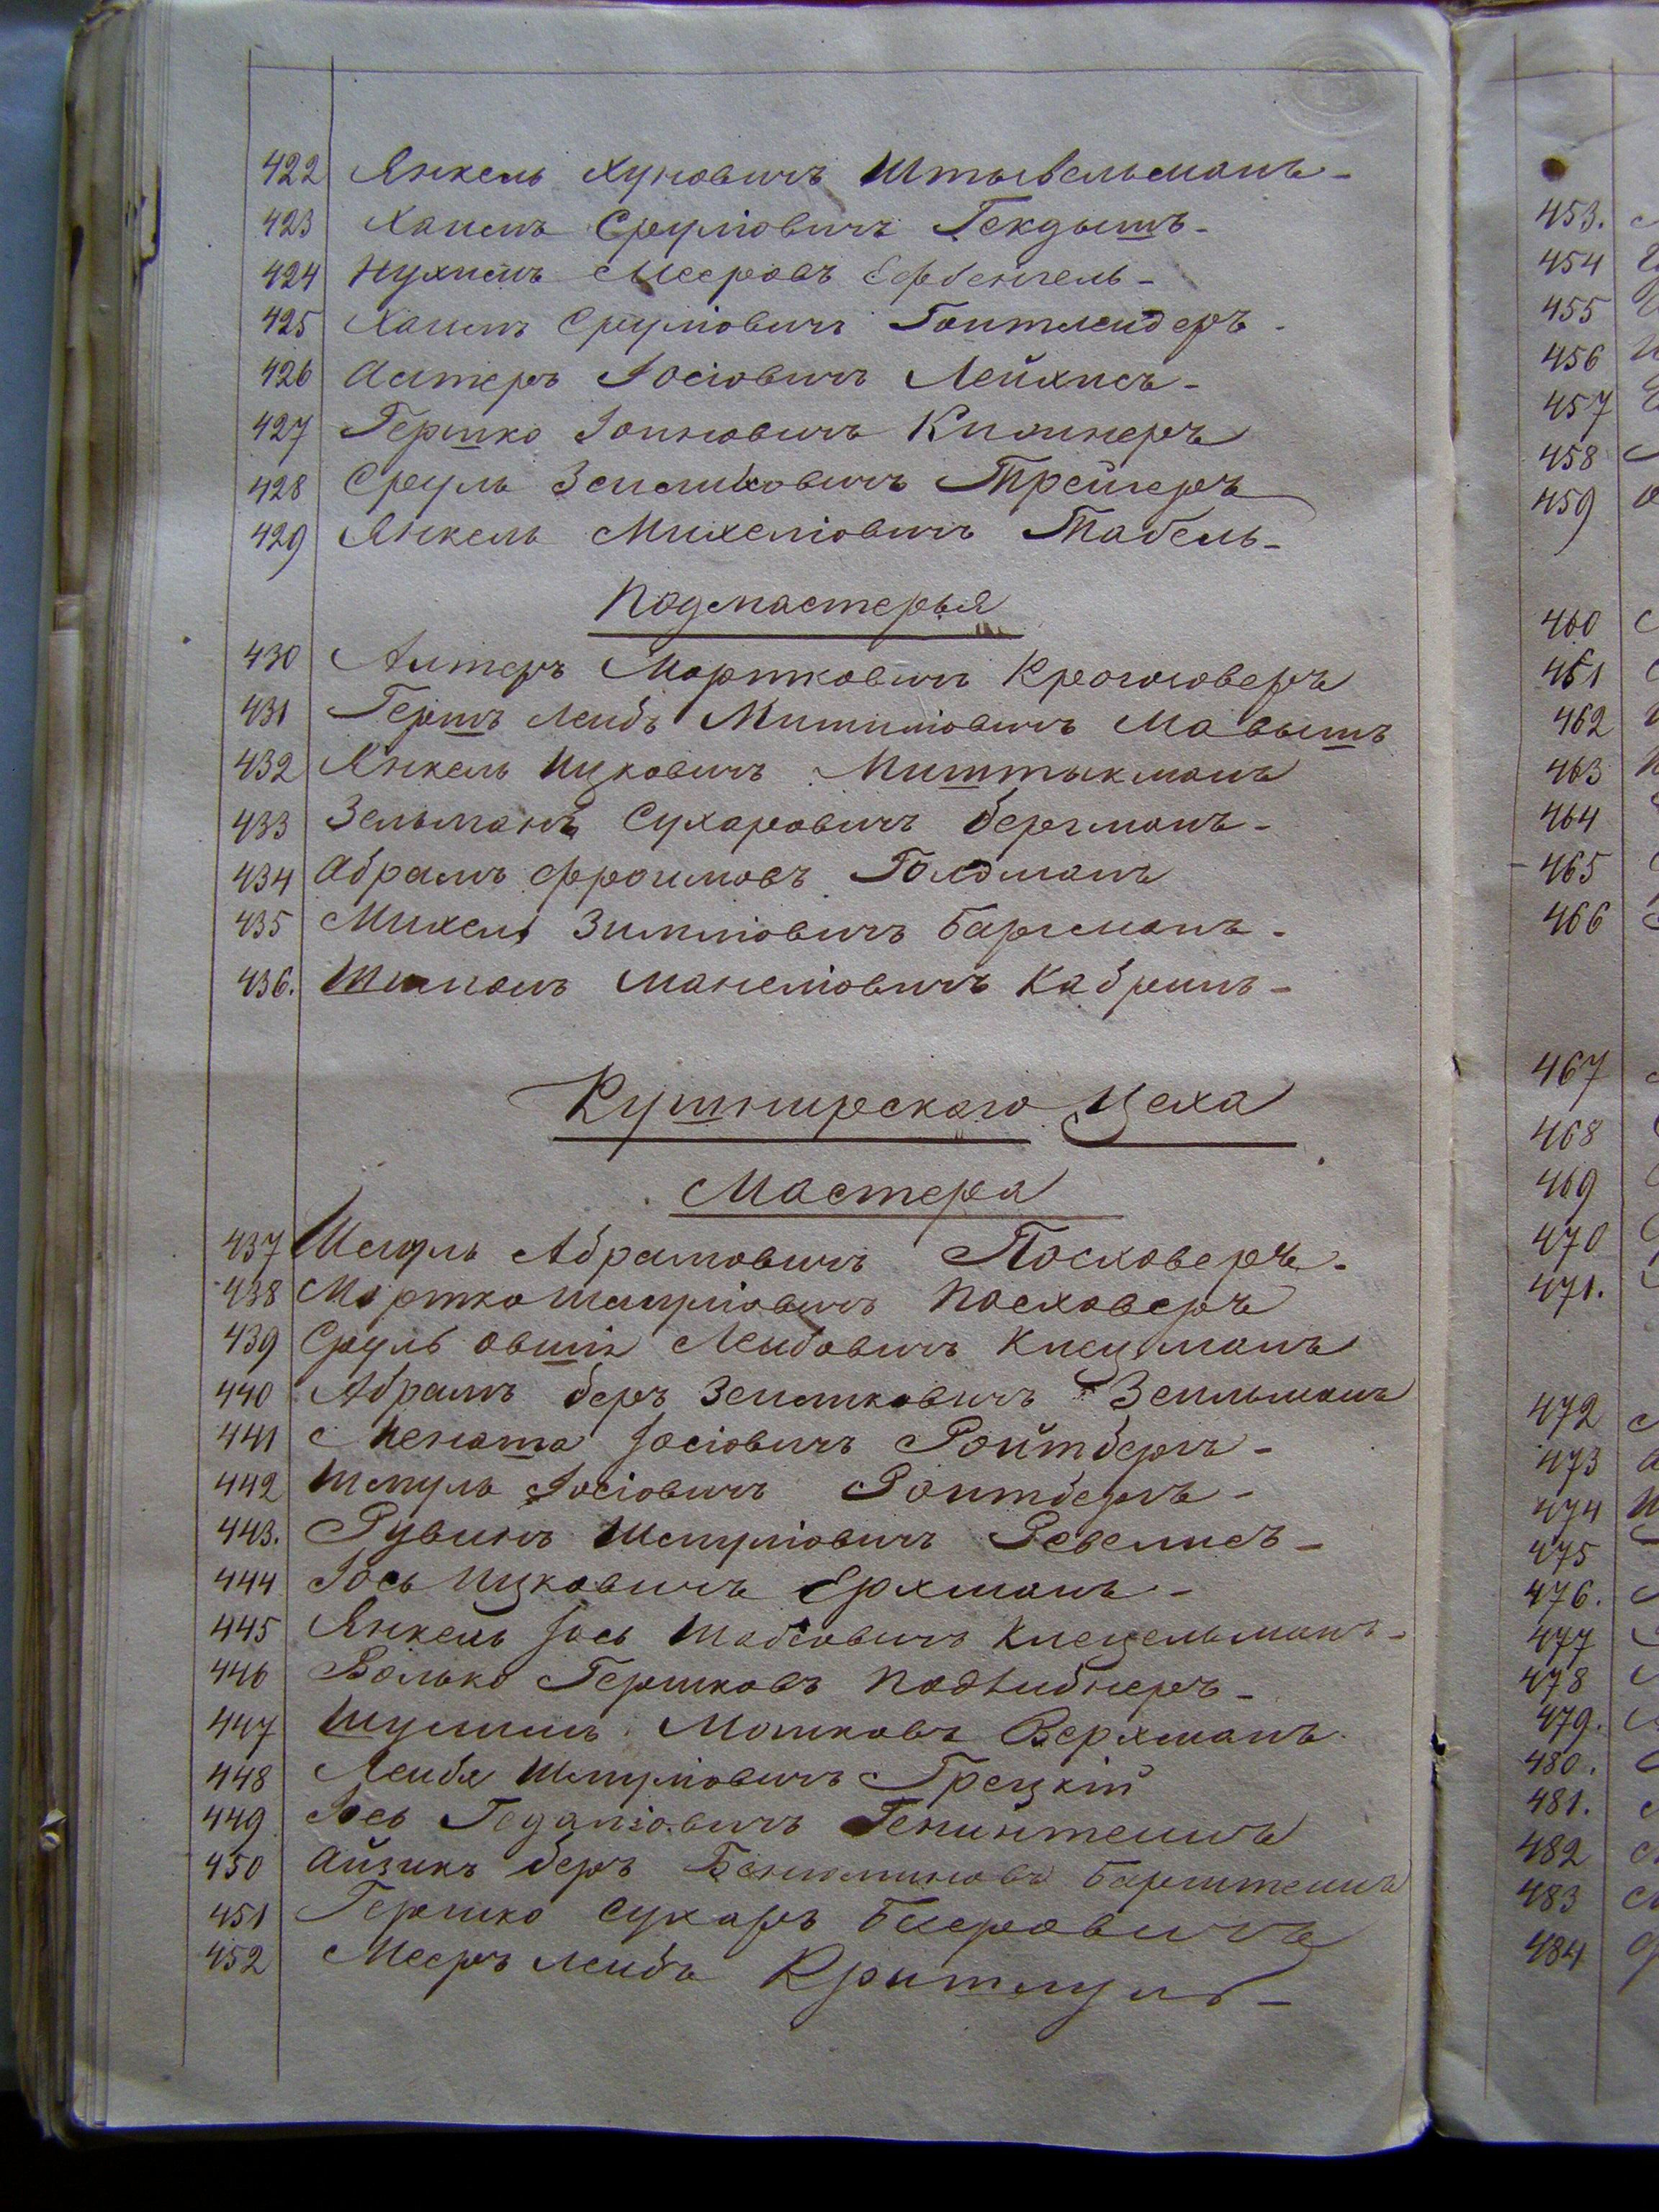 422 Янкель Хуновичъ Штывельманъ -
423 Хаимъ Сруліовичъ Гекдышъ -
424 Нухимъ Мееровъ Ефбенгель -
425 Хаимъ Сруліовичъ Гоитлейдеръ -
426 Алтеръ Іосіовичъ Лейхисъ -
427 Гершко Іоиновичъ
428 Сруль Зейликовичъ Трейгеръ
429 Янкель Михеліовичъ Табель -
Подмастерья
430 Алтеръ Мортковичъ Крогоговеръ
431 Гершъ Лейбъ Мавышъ
432 Янкель Ицковичъ Миштыкманъ
433 Зельманъ Сухаровичъ Бергманъ -
434 Абрамъ Фроимовъ Голдманъ
435 Михель Баргманъ -
436. Манеліовичъ Кабринъ -
Кушнирскаго Цеха
Мастера
437 Шмуль Абрамовичъ Посховеръ -
438 Мортко Шмуліовичъ Посховеръ
439 Сруль Овшія Лейбовичъ Клецманъ
440 Абрамъ Беръ Зейликовичъ Зейльманъ
441 Менаша Іосіовичъ Ройтбергъ -
442 Шмуль Іосіовичъ Роитбергъ -
443. Рувинъ Шмуліовичъ Ревелисъ -
444 Іось Ицковичъ Ерхманъ -
445 Янкель Іось Шабсовичъ Клецельманъ -
446 Волько Гершковъ -
447 Шулимъ Мошковъ Верхманъ
448 Лейба Шмуліовичъ Грецкій
449 Іось Гедаліовичъ Генинтеинъ
450 Айзикъ Беръ Беніаминовъ Барштеинъ
451 Гершко Сухаръ Беировичъ
452 Мееръ Лейбъ Критмуль -
453.
454
455
456
457
458
459
460
461
462
463
464
465
466
467
468
469
470
471.
472
473
474
475
476.
477
478
479.
480.
481.
482
483
484